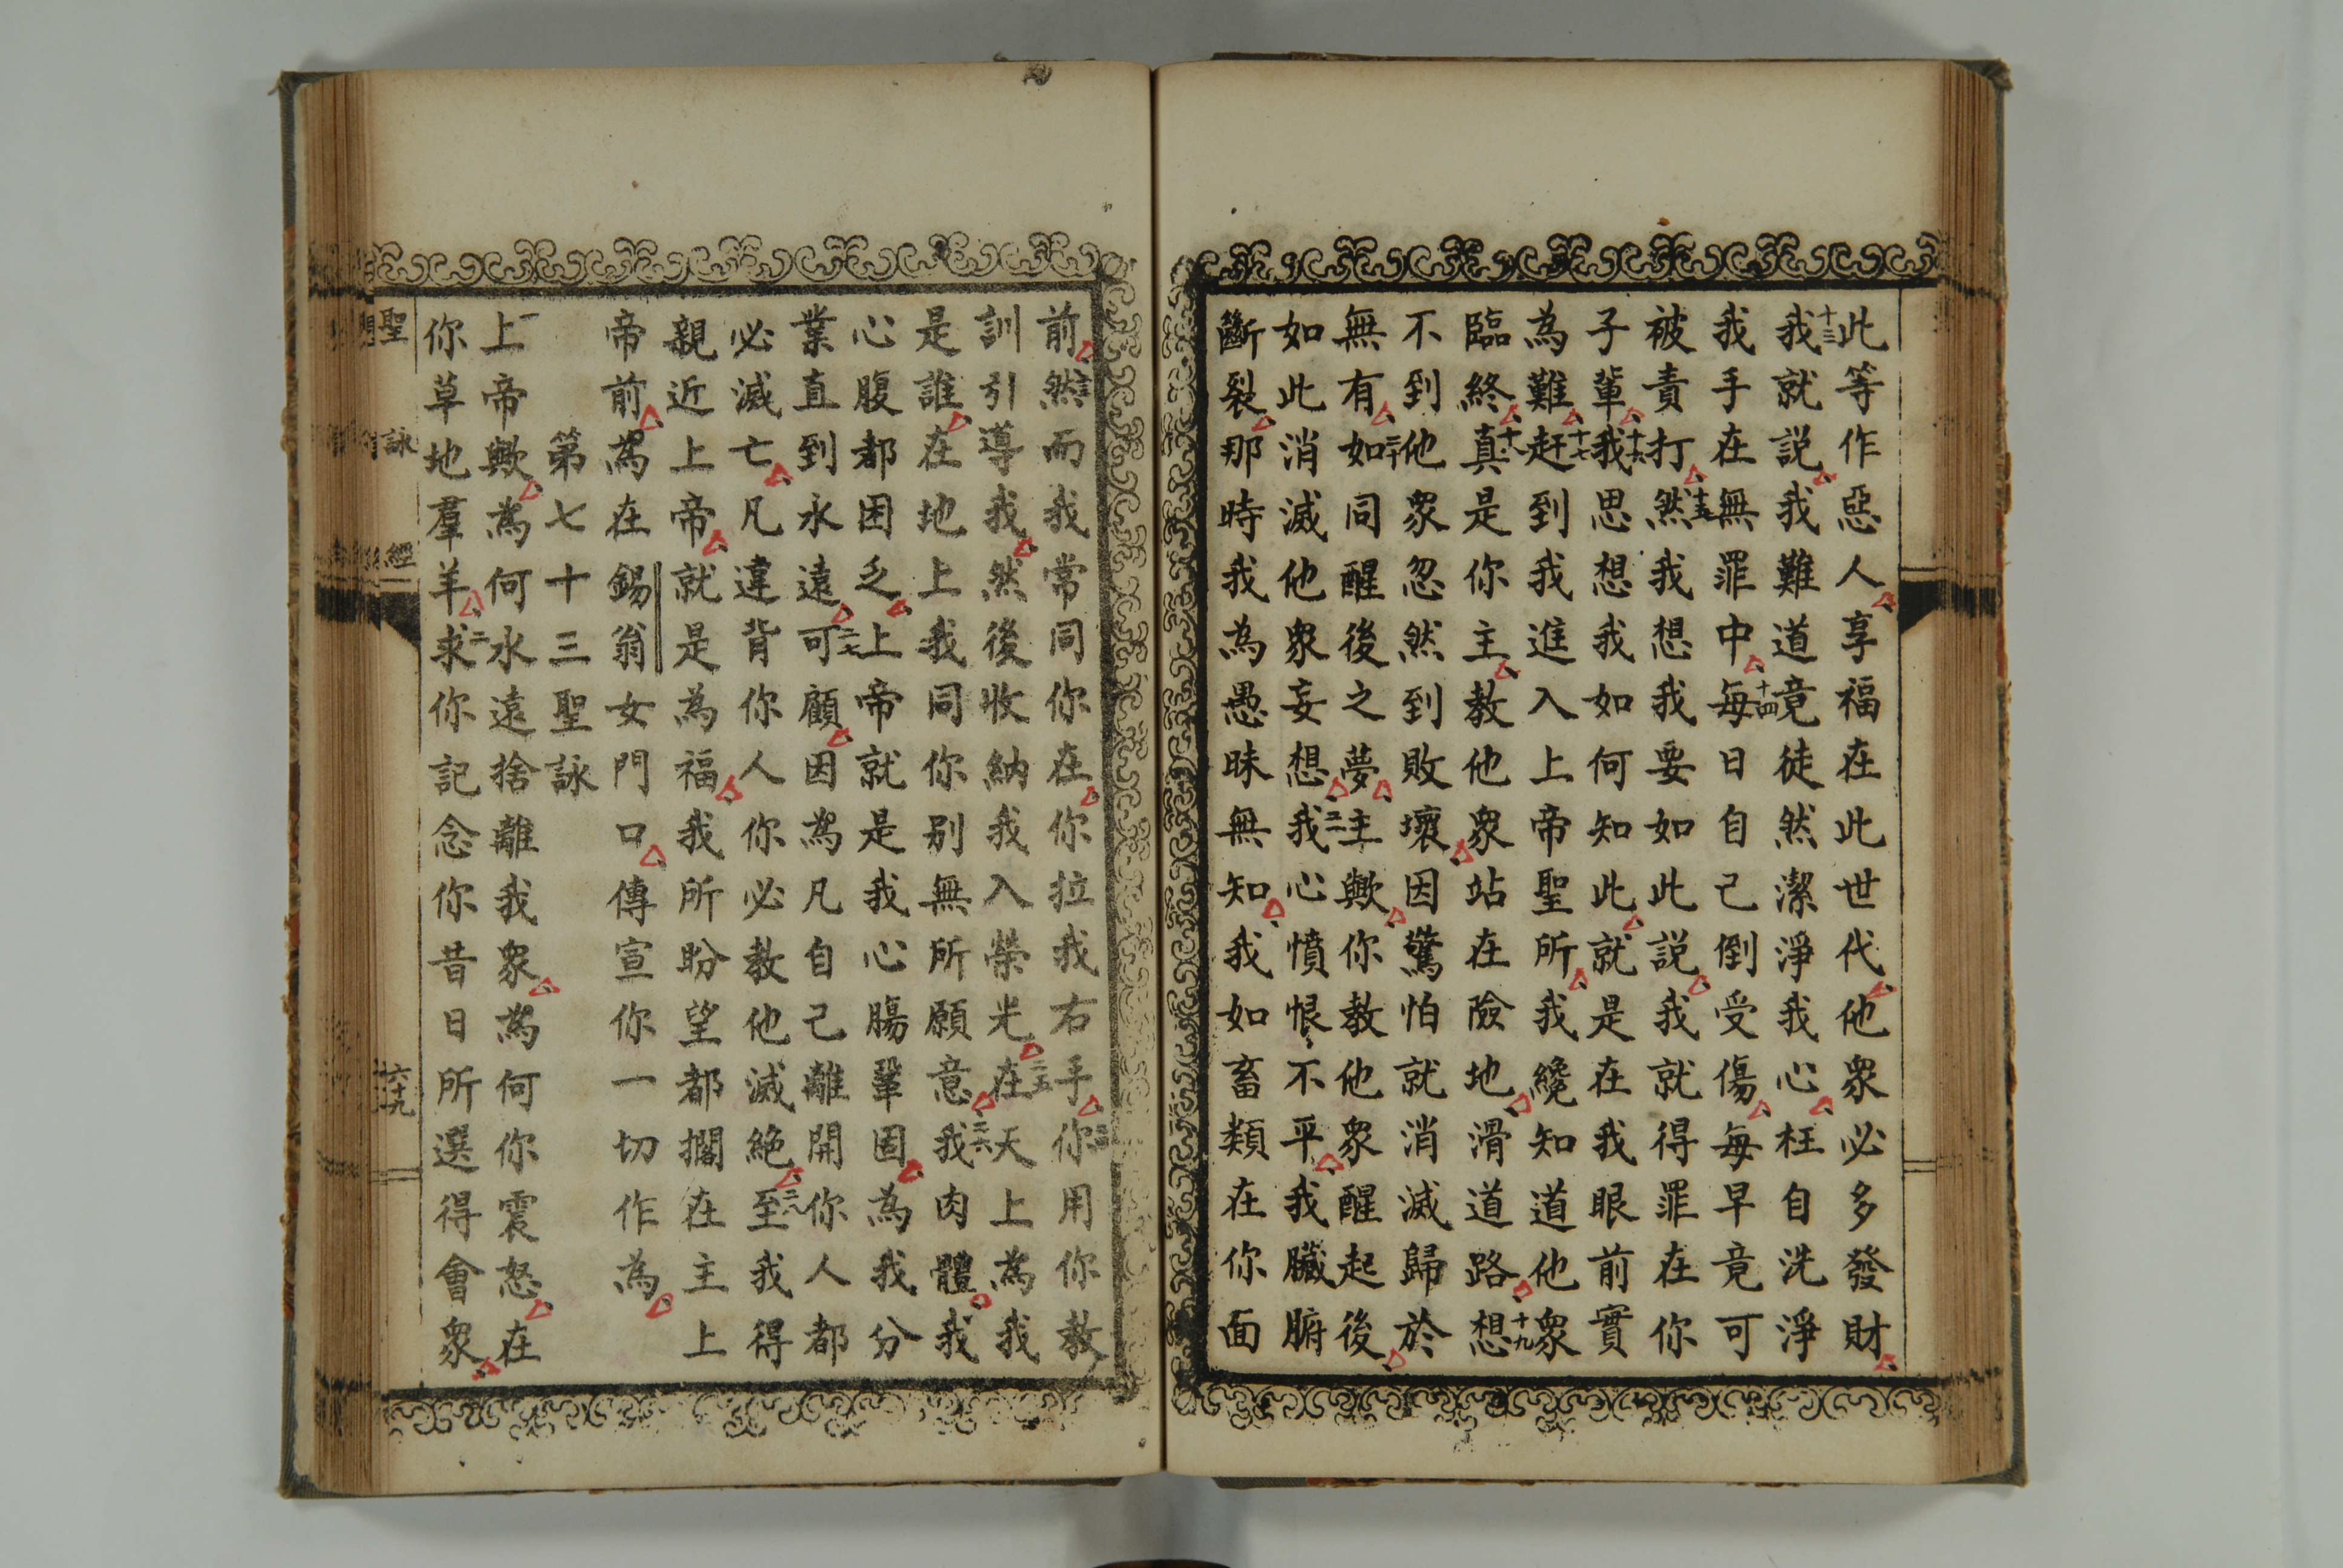 此等作惡人享福在此世代他衆必多發財
十三我就説我難道竟徒然潔淨我心枉自洗淨
我手在無罪中十四每日自己倒受傷每早竟可
被責打十五然我想我要如此説我就得罪在你
子輩十六我思想我如何知此就是在我眼前實
為難十七赶到我進入上帝聖所我纔知道他衆
臨終十八真是你主教他衆站在險地滑道路十九想
不到他衆忽然到敗壞因驚怕就消滅歸於
無有二十如同醒後之夢主歟你教他衆醒起後
如此消滅他衆妄想二一我心憤恨不平我臟腑
斷裂那時我為愚昧無知我如畜類在你面
前二三然而我常同你在你拉我右手二四你用你教
訓引導我然後收納我入榮光二五在天上為我
是誰在地上我同你别無所願意二六我肉體我
心腹都困乏上帝就是我心腸鞏固為我分
業直到永遠二七可顧因為凡自己離開你人都
必滅亡凡違背你人你必教他滅絶二八至我得
親近上帝就是為福我所盼望都擱在主上
帝前為在錫翁女門口傳宣你一切作為
第七十三聖詠
一上帝歟為何永遠捨離我衆為何你震怒在
你草地羣羊二求你記念你昔日所選得會衆
聖詠經 六十九